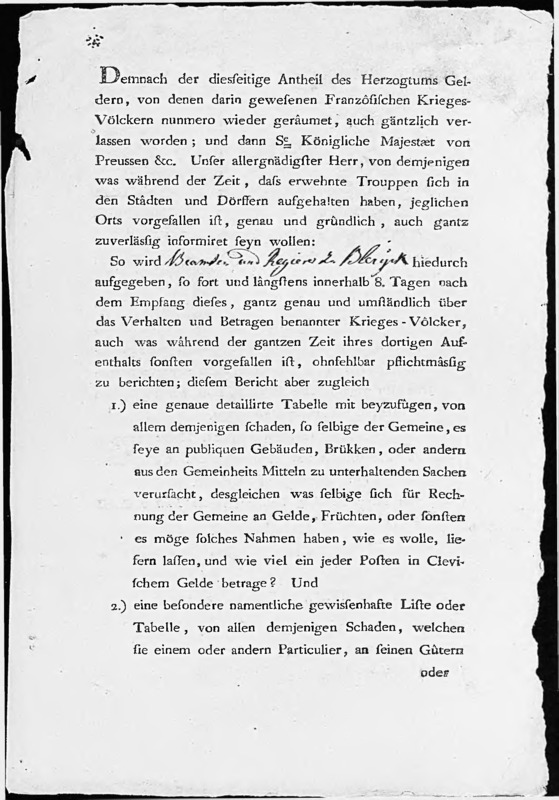 Demnach der diesſeitige Antheil des Herzogtums Gel-
dern, von denen darin geweſenen Franzôſiſchen Krieges-
Völckern nunmero wieder gerâumet, auch gäntzlich ver-
laſſen worden; und dann Se. Königliche Majestæt von
Preussen &c. Unſer allergnädigſter Herr, von demjenigen
was während der Zeit, daſs erwehnte Trouppen ſich in
den Stâdten und Dörffern aufgehalten haben, jeglichen
Orts vorgefallen iſt, genau und grûndlich, auch gantz
zuverläſſig informiret ſeyn wollen:
So wird Beamten und Regierer zu Blerijck hiedurch
aufgegeben, ſo fort und lângſtens innerhalb 8. Tagen nach
dem Empfang dieſes, gantz genau und umſtändlich über
das Verhalten und Betragen benannter Krieges-Vôlcker,
auch was während der gantzen Zeit ihres dortigen Auf-
enthalts ſonſten vorgefallen iſt, ohnfehlbar pflichtmâsſig
zu berichten; dieſem Bericht aber zugleich
1.) eine genaue detaillirte Tabelle mit beyzufûgen, von
allem demjenigen ſchaden, ſo ſelbige der Gemeine, es
ſeye an publiquen Gebäuden, Brûkken, oder andern
aus den Gemeinheits Mitteln zu unterhaltenden Sachen
verurſacht, desgleichen was ſelbige ſich für Rech-
nung der Gemeine an Gelde, Früchten, oder ſonſten
es möge ſolches Nahmen haben, wie es wolle, lie-
fern laſſen, und wie viel ein jeder Poſten in Clevi-
ſchem Gelde betrage? Und
2.) eine beſondere namentliche gewiſſenhafte Liſte oder
Tabelle, von allen demjenigen Schaden, welchen
ſie einem oder andern Particulier, an ſeinen Gûtern
oder